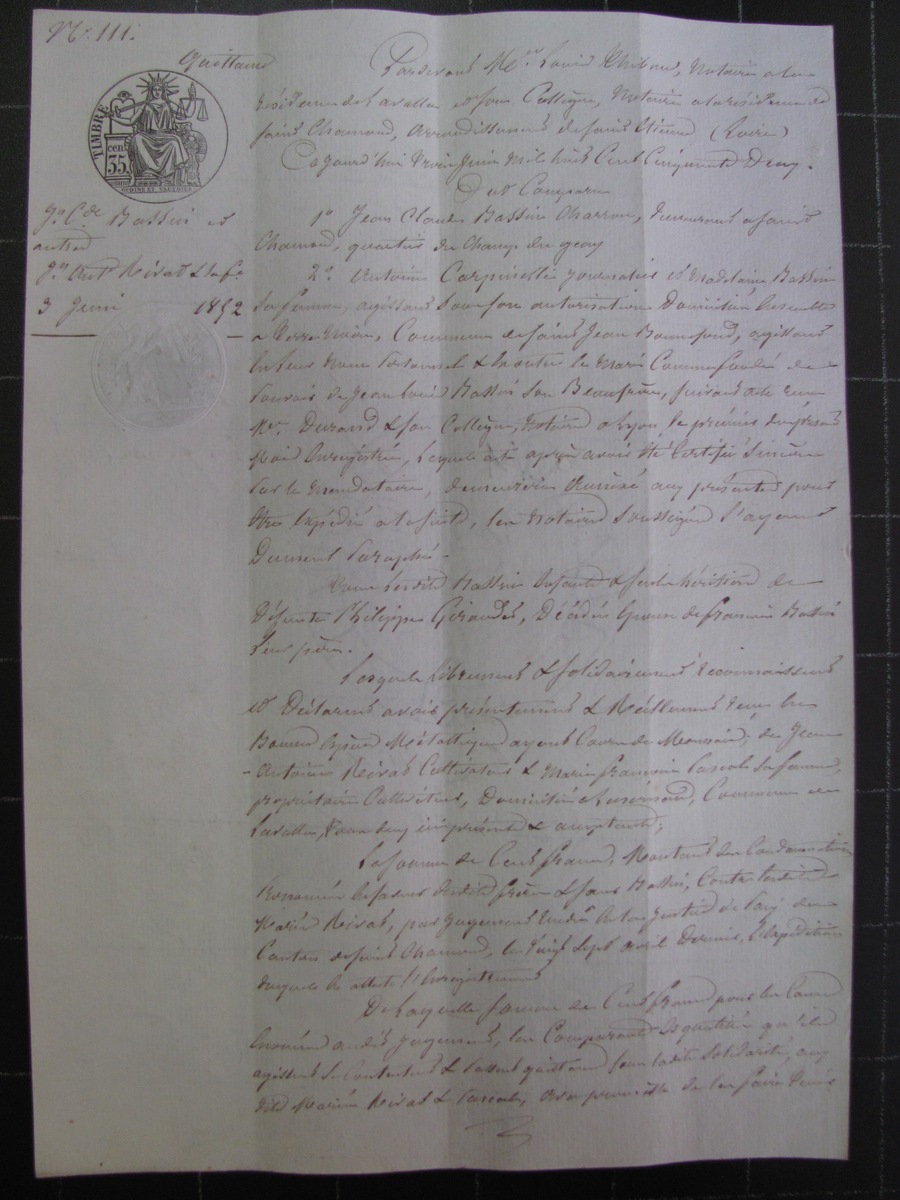 N° 111.
Quittance
TIMBRE
35 cen
Jn Cde Bassin et
autres
Jn Ant Rivat & sa fe
3 Juin 1852
Pardevant Me Louis Thibau, Notaire à la
résidence de Lavalla et son Collègue, Notaire à la résidence de
Saint Chamond, arrondissement de Saint Etienne (Loire)
Cejourd'hui trois Juin mil huit Cent Cinquante Deux.
Ont Comparu
1° Jean Claude Bassin Charron, demeurant à Saint
Chamond, quartier du Champ du geay
2° Antoine Carpinelli journalier et Madelaine Bassin
sa femme, agissant sous son autorisation Domiciliés ensemble
à Commune de Saint Jean Bonnefond, agissant
en leur nom personnel & en outre le Mari Comme fondé de
Pouvoir de Jean Louis Bassin son Beaufrère, suivant acte reçu
Me Durand & son Collègue, Notaire à Lyon le premier du présent
Mois Enregistré, Lequel acte après avoir été Certifié Sincère
Par le Mandataire, demeurera Annexé aux présentes pour
être Expédié à la suite, les Notaires Soussignés L'ayant
Dument Paraphé.
Tous lesdits Bassin Enfants & seuls héritiers de
Défunte Philippe Giraudet, Décédée Epouse de François Bassin
Leur père.
Lesquels Librement & solidairement reconnaissent
et Déclarent avoir présentement & Réellement reçu en
Bonnes Espèces Métalliques ayant Cours de Monnaie, de Jean
Antoine Rivat Cultivateur & Marie Françoise Pascal sa femme,
propriétaires Cultivateurs, Domiciliés à Commune de
Lavalla, Tous deux ici présents & acceptants,
La somme de Cent francs, Montant des Condamnations
Prononcées en faveur desdits frères & sœur Bassin, Contre lesdits
Mariés Rivat, par Jugement rendu en la Justice de Paix du
Canton de Saint Chamond, le Vingt Sept avril Dernier, L'Expédition
duquel en atteste l'Enregistrement
De Laquelle somme de Cent francs pour les Causes
Enoncées audit jugement, les Comparants es qualités qu'ils
agissent se Contentent & Passent quittance sous ladite Solidarité, aux
dits Mariés Rivat & Pascal, avec promesse de les faire tenir